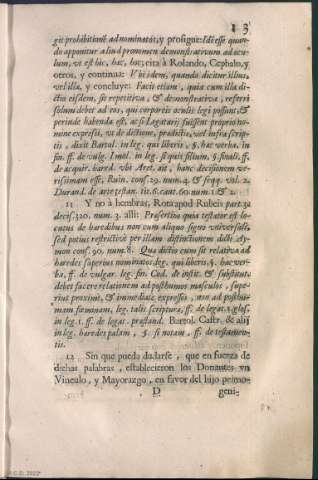 13
git prohibitionē ad nominatos, y prosigue: Idē esse quando
apponitur aliud pronomen demonstrativum ad oculum,
ut est hic, hæc, hoc; cita à Rolando, Cephalo, y
otros, y continua: Ubi idem, quando dicitur illius,
vel illa, y concluye: Facit etiam, quia cum illa dictio
eisdem, sit repetitiva, & demonstrativa, referri
solum debet ad eos, qui corporeis oculis legi possunt, &
perinde habenda est, ac si Legatarij fuissent proprio nomine
expressi, ut de dictione, prædictis, vel infrascriptis
, dixit Bartol. in leg. qui liberis, §. hæc verba. in
fin. ff. de vulg. Imol. in leg. si quis filium, §. finali, ff.
de acquir. hæred. ubi Aret. ait, hanc decisionem verissimam
esse, Ruin. cons. 29. num. 4. & seqq. vol. 2.
Durand. de arte testan. tit. 6. caut. 60. num. 1. & 2.
11 Y no à hembras, Rota apud Rubeis part. 3.
decis. 320. num. 3. alli: Præsertim quia testator est locutus
de hæredibus non cum aliquo signo universali,
sed potius restrictivè per illam distinctionem dicti, Aymon
cons. 90. num. 8. Qua dictio cum sit relativa ad
hæredes superius nominatos leg. qui liberis, §. hæc verba,
ff. de vulgar. leg. fin. Cod. de instit. & substitut.
debet facere relationem ad posthumos masculos, superius
proximè, & immediatè expressos, non ad posthumam
fœminam, leg. talis scriptura, ff. de legat. 1. glos.
in leg. 1. ff. de legat. præstand. Bartol. Castr. & alij
in leg. hæredes palam, §. si notam, ff. de testamentis.
12 Sin que pueda dudarse, que en fuerza de
dichas palabras, establecieron los Donantes vn
Vinculo, y Mayorazgo, en favor del hijo primo-
D geni-